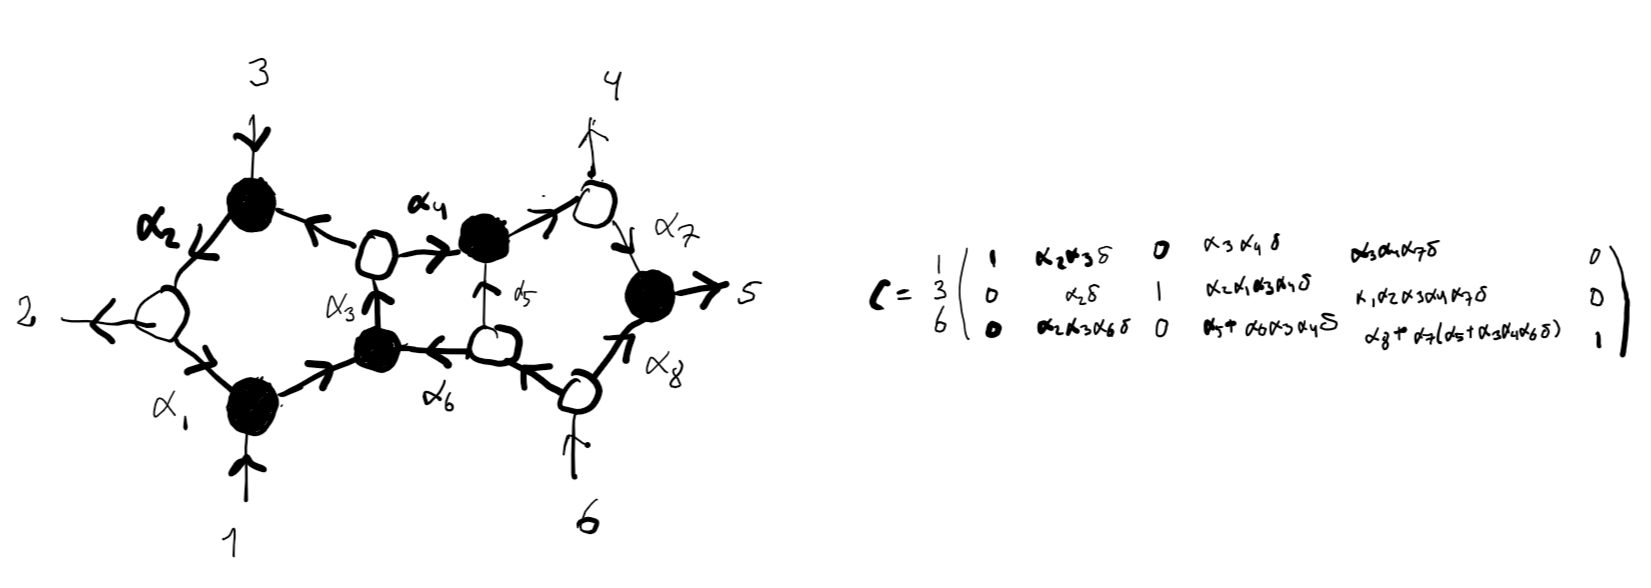 3
4
α₄
α₂
α₇
2
α₃
α₅
5
α₁
α₆
α₈
1
6
C =
1 ( 1 α₂α₃δ 0 α₃α₄δ α₃α₄α₇δ 0 )
3 ( 0 α₂δ 1 α₂α₁α₃α₄δ α₁α₂α₃α₄α₇δ 0 )
6 ( 0 α₂α₃α₆δ 0 α₅+α₆α₃α₄δ α₈+α₇(α₅+α₃α₄α₆δ) 1 )